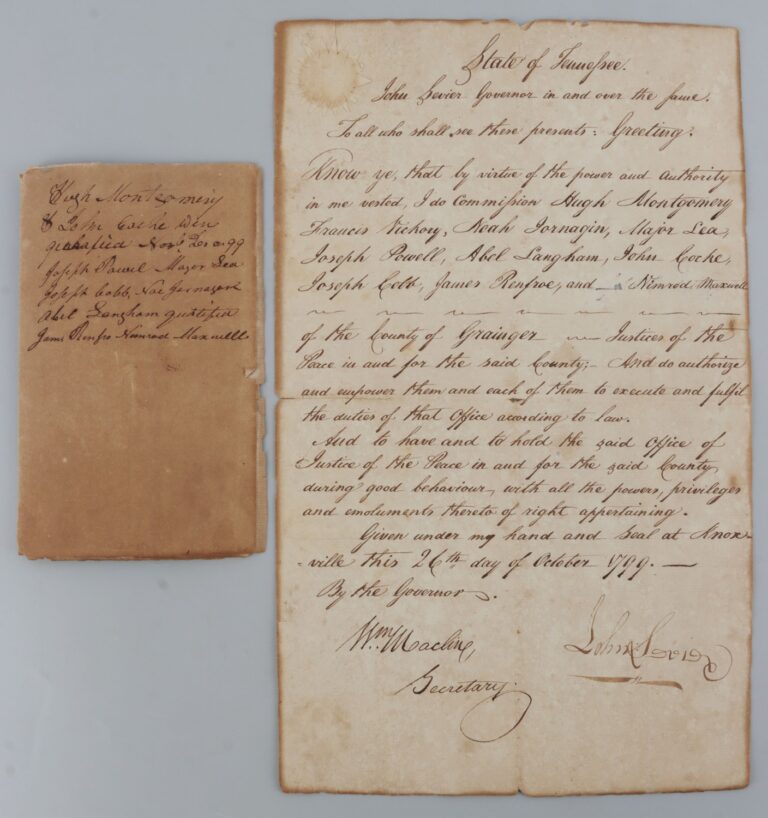 Hugh Montgomery
& John Cocke Wm
qualified Novr. 20th 99
Joseph Powel Major Lea
Joseph Cobb, Noe Jarnagan
Abel Langham qualified
James Renfro Nimrod Maxwell
State of Tennessee.
John Sevier Governor in and over the same.
To all who shall see these presents: Greeting.
Know ye, that by virtue of the power and authority
in me vested, I do Commission Hugh Montgomery
Francis Vickory, Noah Jornagin, Major Lea,
Joseph Powell, Abel Langham, John Cocke,
Joseph Cobb, James Renfroe, and Nimrod Maxwell
of the County of Grainger Justices of the
Peace in and for the said County;- And do authorize
and empower them and each of them to execute and fulfil
the duties of that Office according to law.
And to have and to hold the said Office of
Justice of the Peace in and for the said County,
during good behaviour, with all the powers, privileges
and emoluments thereto of right appertaining.
Given under my hand and seal at Knox-
-ville this 26th day of October 1799. —
By the Governor.
Wm. Maclin,
Secretary.
John Sevier